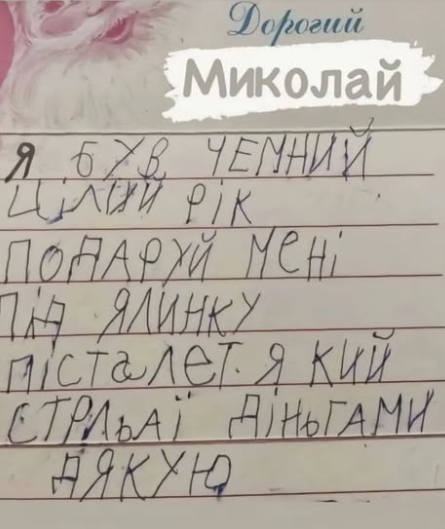 Дорогий
Миколай
Я БУВ ЧЕМНИЙ
ЦІЛИЙ РІК
ПОДАРУЙ МЕНІ
ПІД ЯЛИНКУ
ПІСТАЛЕТ ЯКИЙ
СТРЛЬАЇ ДІНЬГАМИ
ДЯКУЮ